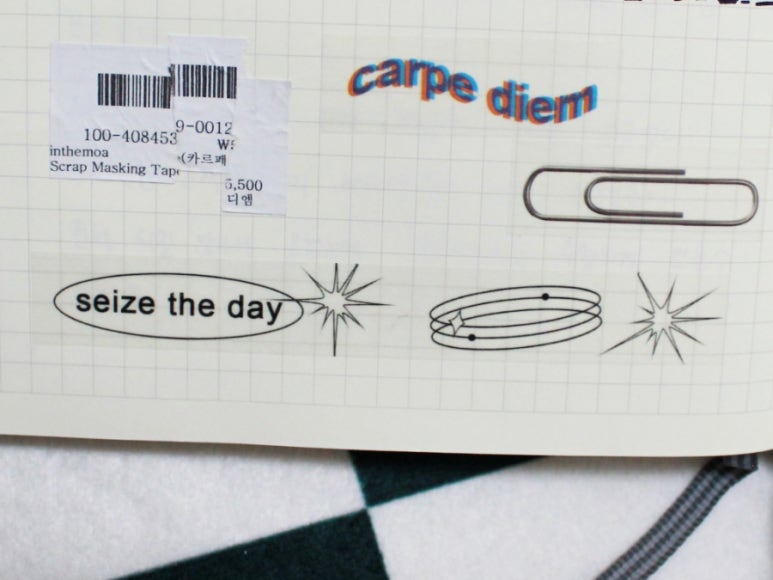 carpe diem
100-408453
9-0012
inthemoa
(카르페
Scrap Masking Tape
5,500
디엠
seize the day